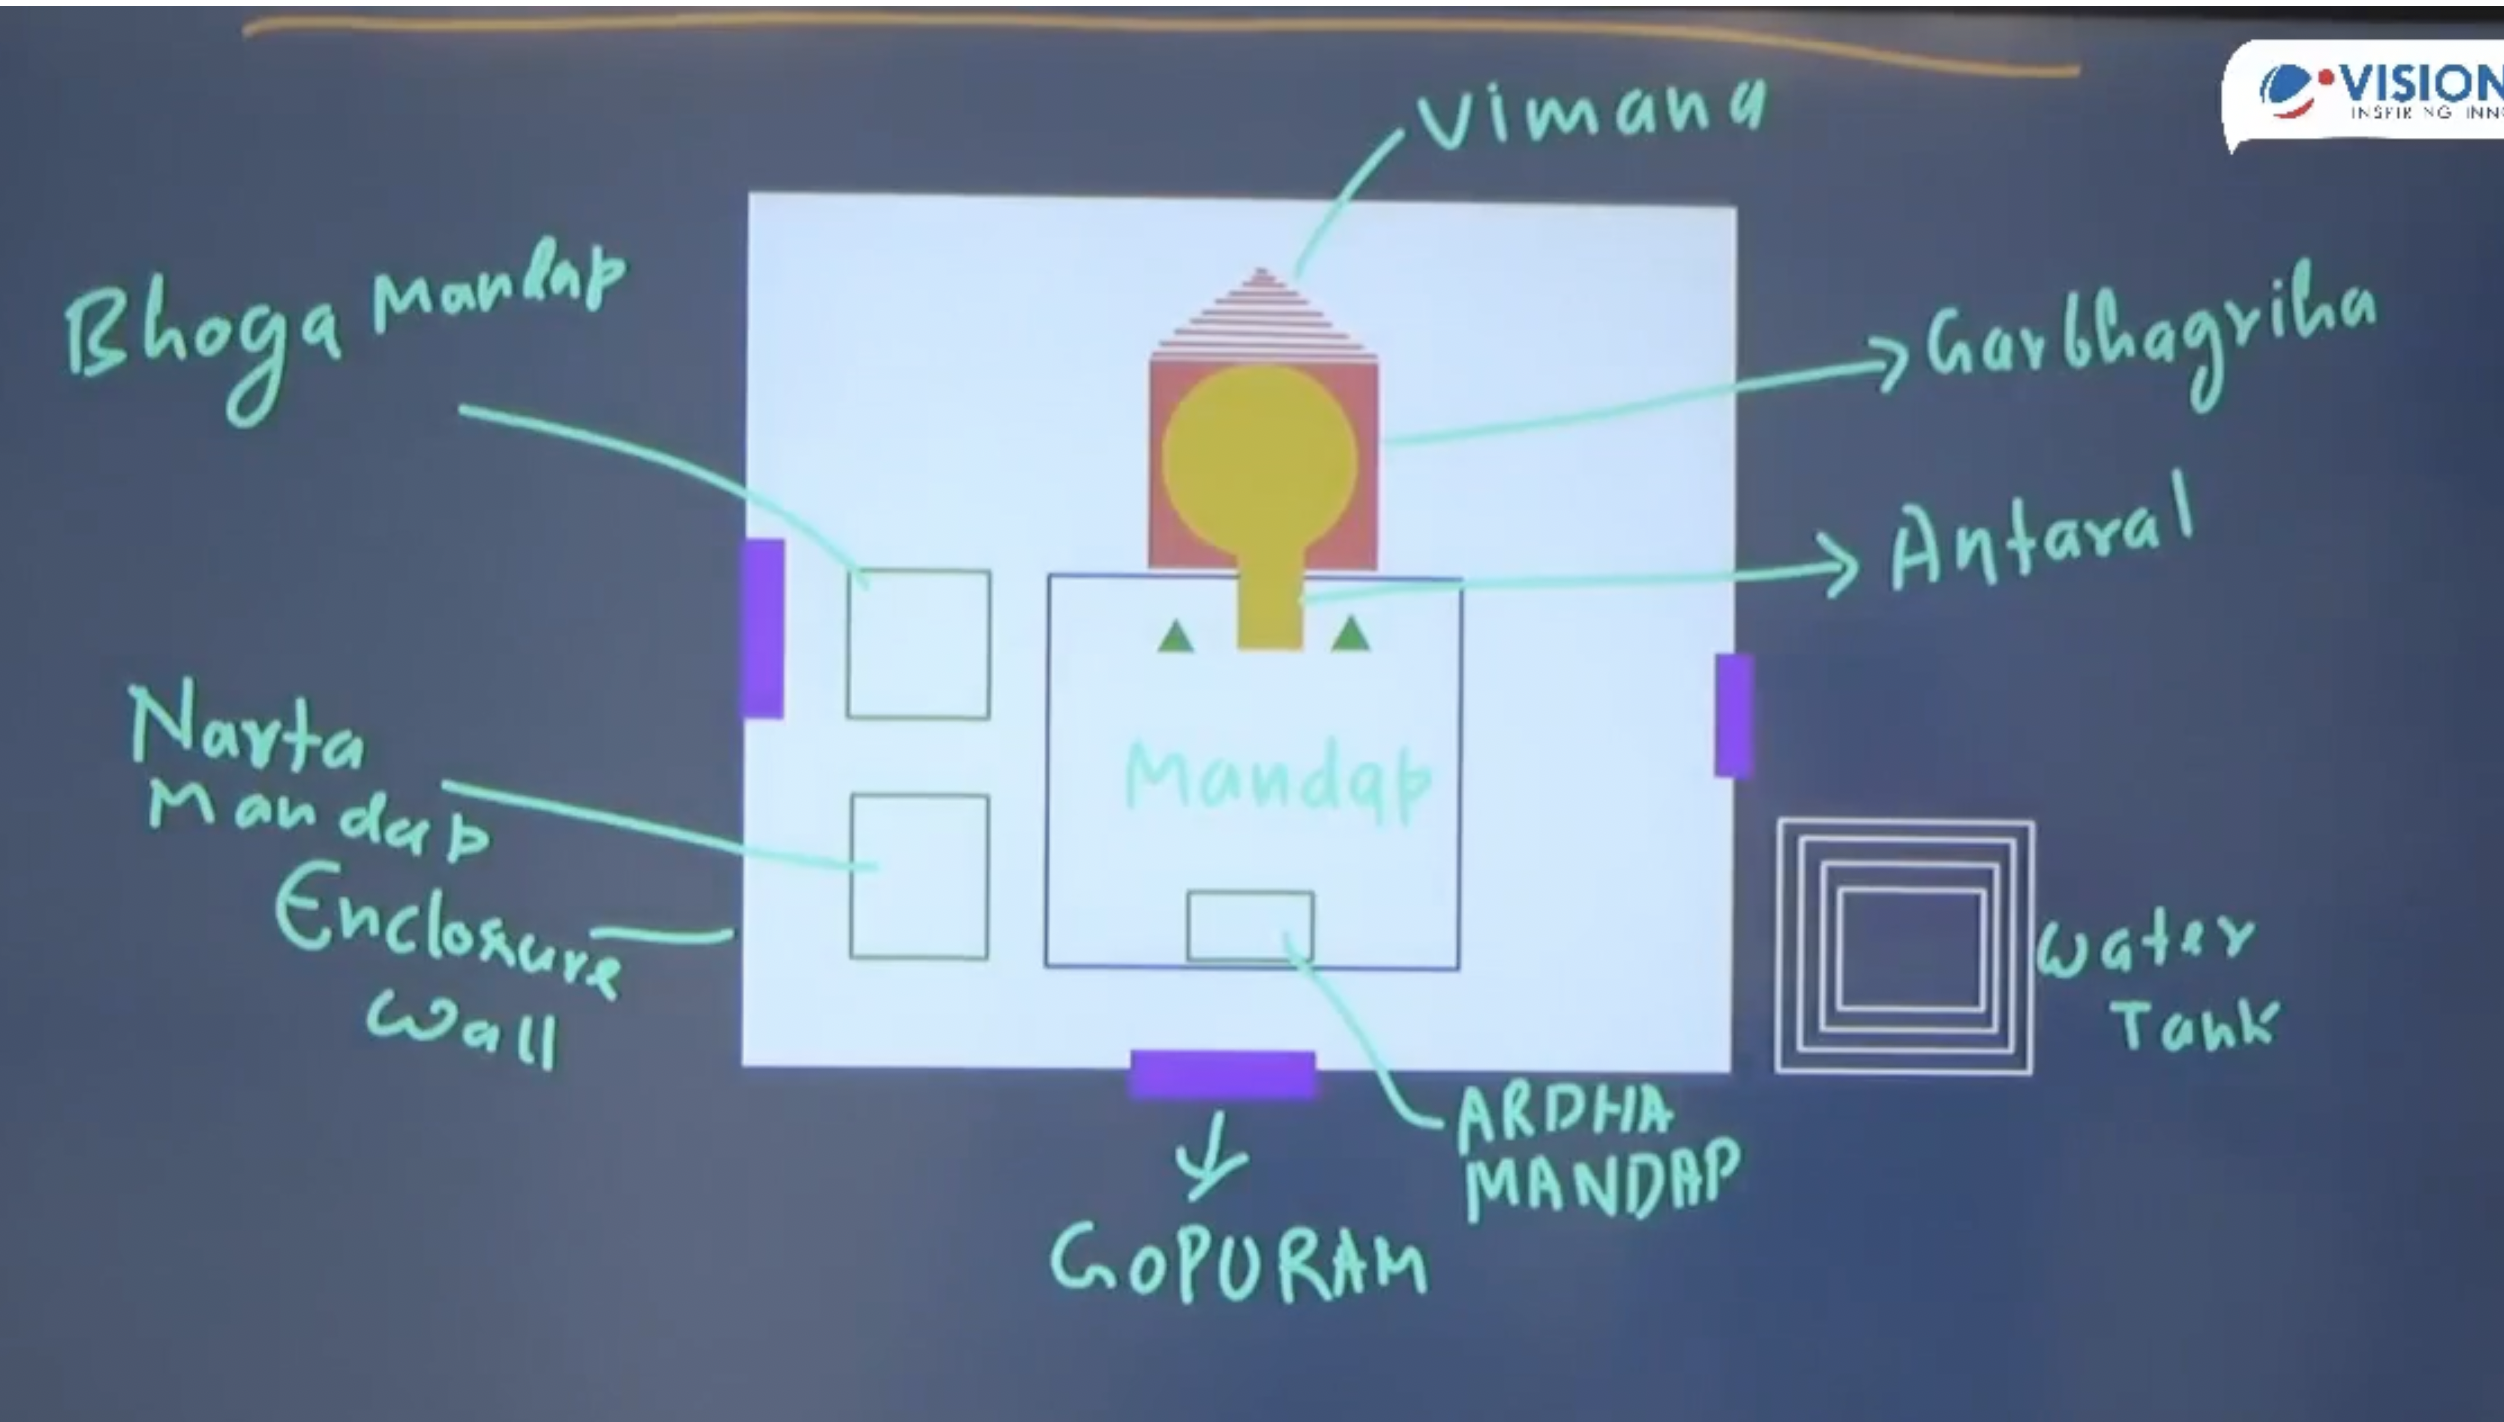 VISION
INSPIRING INNO
Vimana
Bhoga Mandap
Garbhagriha
Antaral
Narta
Mandap
Mandap
Enclosure
Wall
Water
Tank
ARDHA
MANDAP
GOPURAM